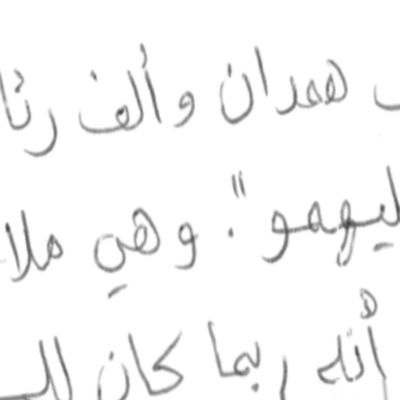 همدان وألف رئا
ليهمو". وهي ملا
أنه ربما كان الب